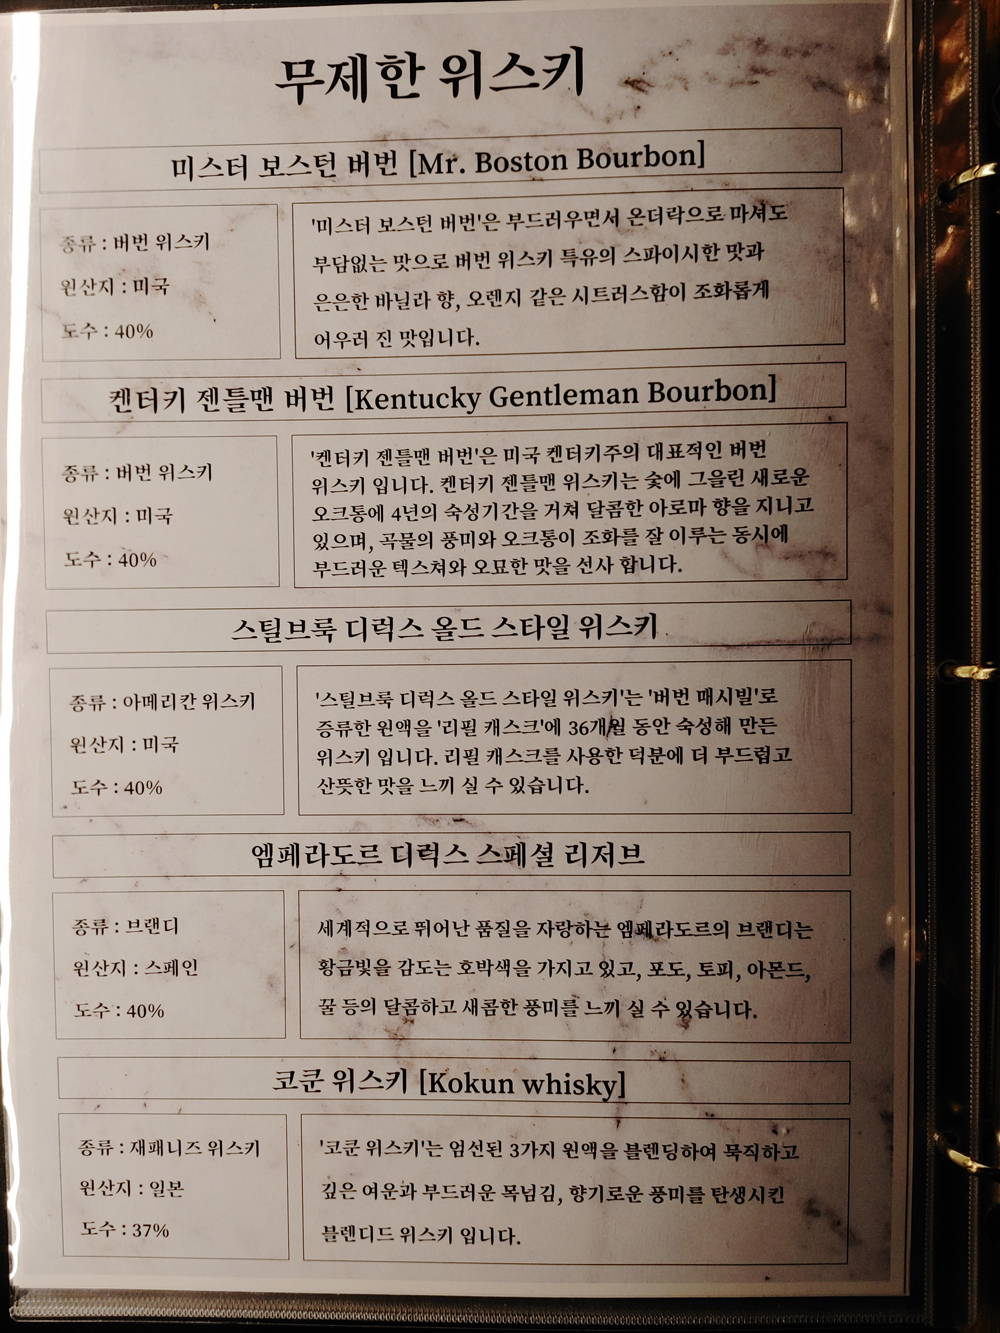 무제한 위스키
미스터 보스턴 버번 [Mr. Boston Bourbon]
종류 : 버번 위스키
원산지 : 미국
도수 : 40%
'미스터 보스턴 버번'은 부드러우면서 온더락으로 마셔도
부담없는 맛으로 버번 위스키 특유의 스파이시한 맛과
은은한 바닐라 향, 오렌지 같은 시트러스함이 조화롭게
어우러 진 맛입니다.
켄터키 젠틀맨 버번 [Kentucky Gentleman Bourbon]
종류 : 버번 위스키
원산지 : 미국
도수 : 40%
'켄터키 젠틀맨 버번'은 미국 켄터키주의 대표적인 버번
위스키 입니다. 켄터키 젠틀맨 위스키는 숯에 그을린 새로운
오크통에 4년의 숙성기간을 거쳐 달콤한 아로마 향을 지니고
있으며, 곡물의 풍미와 오크통이 조화를 잘 이루는 동시에
부드러운 텍스쳐와 오묘한 맛을 선사 합니다.
스틸브룩 디럭스 올드 스타일 위스키
종류 : 아메리칸 위스키
원산지 : 미국
도수 : 40%
'스틸브룩 디럭스 올드 스타일 위스키'는 '버번 매시빌'로
증류한 원액을 '리필 캐스크'에 36개월 동안 숙성해 만든
위스키 입니다. 리필 캐스크를 사용한 덕분에 더 부드럽고
산뜻한 맛을 느끼 실 수 있습니다.
엠페라도르 디럭스 스페셜 리저브
종류 : 브랜디
원산지 : 스페인
도수 : 40%
세계적으로 뛰어난 품질을 자랑하는 엠페라도르의 브랜디는
황금빛을 감도는 호박색을 가지고 있고, 포도, 토피, 아몬드,
꿀 등의 달콤하고 새콤한 풍미를 느끼 실 수 있습니다.
코쿤 위스키 [Kokun whisky]
종류 : 재패니즈 위스키
원산지 : 일본
도수 : 37%
'코쿤 위스키'는 엄선된 3가지 원액을 블렌딩하여 묵직하고
깊은 여운과 부드러운 목넘김, 향기로운 풍미를 탄생시킨
블렌디드 위스키 입니다.